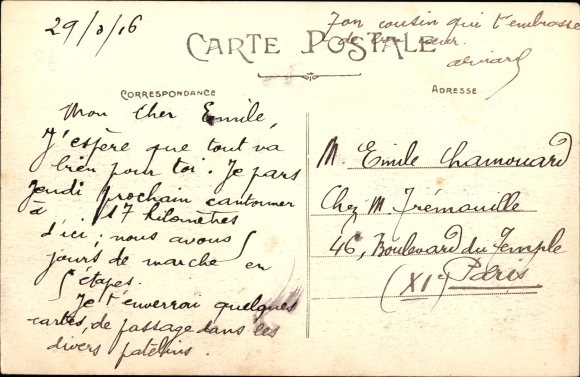 29/8/16
Ton cousin qui t'embrasse
de bon cœur.
CARTE POSTALE
CORRESPONDANCE
ADRESSE
Mon cher Emile,
J'espère que tout va
bien pour toi. Je pars
Jeudi prochain cantonner
à 117 kilomètres
d'ici; nous avons 5
jours de marche en
5 étapes.
Je t'enverrai quelques
cartes, de passage dans les
divers patelins.
M. Emile Chamouard
Chez M. Trémouille
46, Boulevard du Temple
(XIe) Paris